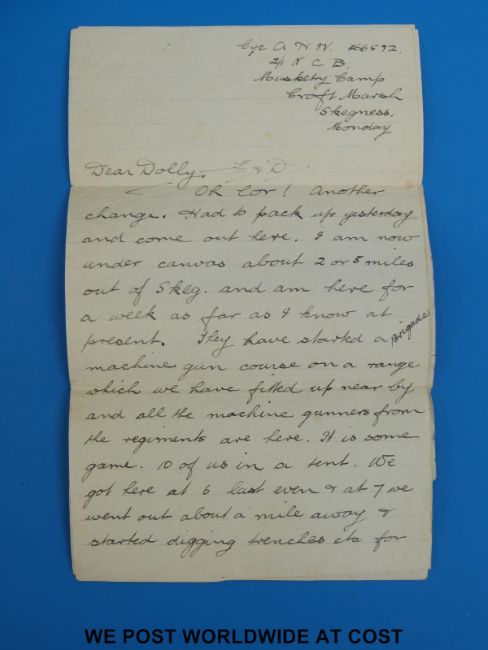 Cyc A H W. 266592.
2/1 N C B.
Musketry Camp
Croft Marsh
Skegness,
Monday
Dear Dolly. E & D
Oh Lor! Another
change. Had to pack up yesterday
and come out here. I am now
under canvas about 2 or 3 miles
out of Skeg. and am here for
a week as far as I know at
present. They have started a Brigade
machine gun course on a range
which we have fitted up near by
and all the machine gunners from
the regiments are here. It is some
game. 10 of us in a tent. We
got here at 6 last even & at 7 we
went out about a mile away &
started digging trenches etc for
WE POST WORLDWIDE AT COST